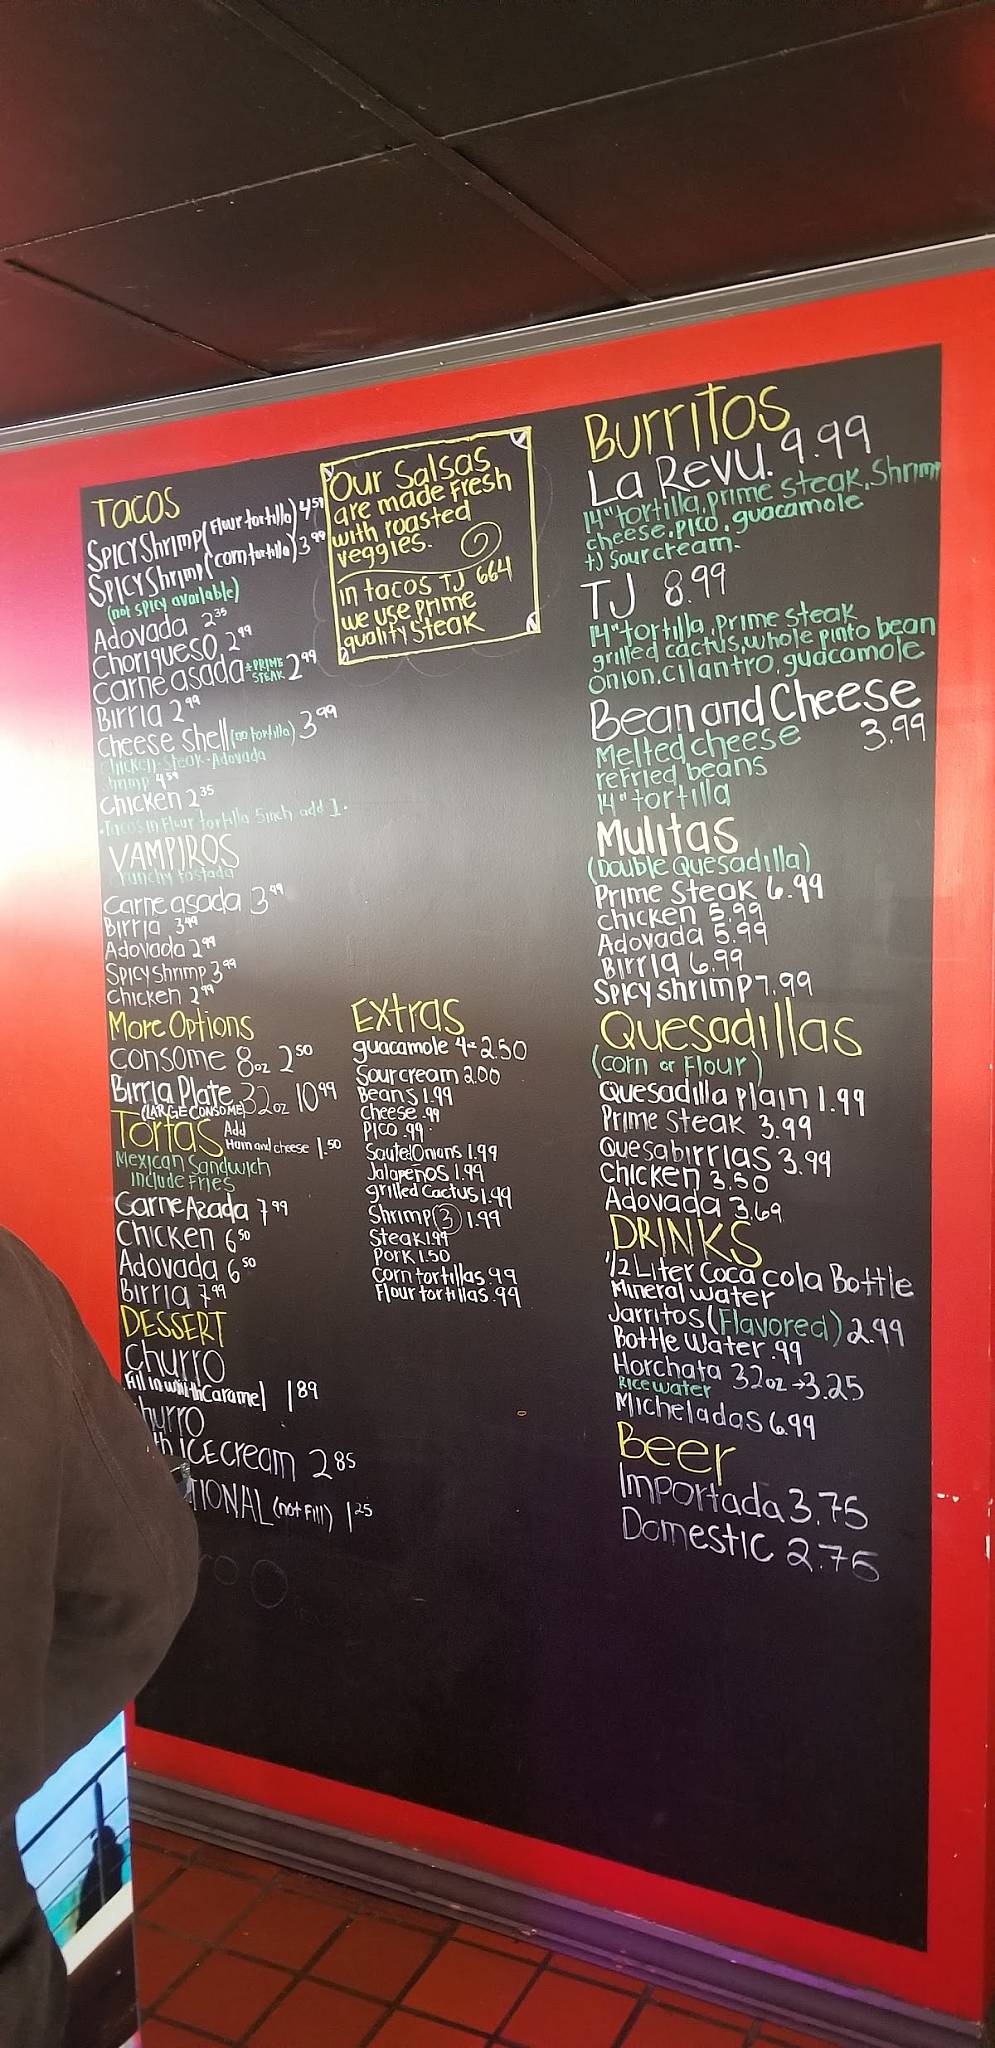 TACOS
Spicy Shrimp (Flour tortilla) 4.59
Spicy Shrimp (corn tortilla) 3.99
(not spicy available)
Adovada 2.35
Choriqueso, 2.99
Carne asada *PRIME STEAK 2.99
Birria 2.99
cheese shell (no tortilla) 3.99
chicken-Steak-Adovada
4.59
chicken 2.35
.Tacos in Flour tortilla 5inch add 1.
VAMPIROS
tostada
Carne asada 3.99
Birria 3.99
Adovada 2.99
Spicy shrimp 3.99
chicken 2.99
More Options
consome 8oz 2.50
Birria Plate 32oz 10.99
(LARGE CONSOME)
Tortas Add Ham and cheese 1.50
Mexican Sandwich
include Fries
Carne Azada 7.99
Chicken 6.50
Adovada 6.50
Birria 7.99
DESSERT
churro
Fill in with Caramel 1.89
hurro
th ICE cream 2.85
TIONAL (not Fill) 1.25
Our Salsas
are made Fresh
with roasted
veggies.
in tacos TJ 664
we use prime
quality Steak
Extras
guacamole 4oz 2.50
Sour cream 2.00
Beans 1.99
Cheese .99
Pico .99
Sauted Onions 1.99
Jalapeños 1.99
grilled Cactus 1.99
Shrimp (3) 1.99
Steak 1.99
Pork 1.50
Corn tortillas .99
Flour tortillas .99
Burritos
La Revu. 9.99
14" tortilla, prime steak, Shrimp
cheese, pico, guacamole
tJ sour cream.
TJ 8.99
14" tortilla, Prime Steak
grilled cactus, whole pinto bean
onion, cilantro, guacamole
Bean and Cheese
3.99
Melted cheese
refried beans
14" tortilla
Mulitas
(Double Quesadilla)
Prime Steak 6.99
chicken 5.99
Adovada 5.99
Birria 6.99
Spicy shrimp 7.99
Quesadillas
(corn or Flour)
Quesadilla plain 1.99
Prime Steak 3.99
Quesabirrias 3.99
chicken 3.50
Adovada 3.69
DRINKS
1/2 Liter Coca cola Bottle
Mineral water
Jarritos (Flavored) 2.99
Bottle Water .99
Horchata 32oz → 3.25
Rice water
Micheladas 6.99
Beer
Importada 3.75
Domestic 2.75